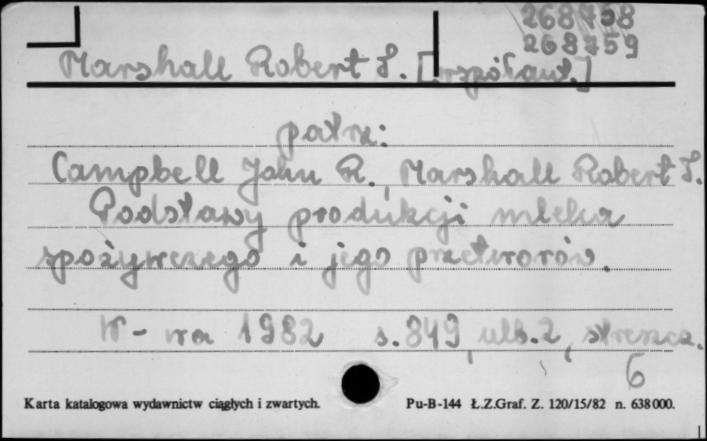 268758
268759
Marshall Robert T. [współaut.]
patrz:
Campbell John R., Marshall Robert T.
Podstawy produkcji mleka
spożywczego i jego przetworów.
W-wa 1982 s. 849, ulb. 2, streszcz.
6
Karta katalogowa wydawnictw ciągłych i zwartych. Pu-B-144 Ł.Z.Graf. Z. 120/15/82 n. 638000.